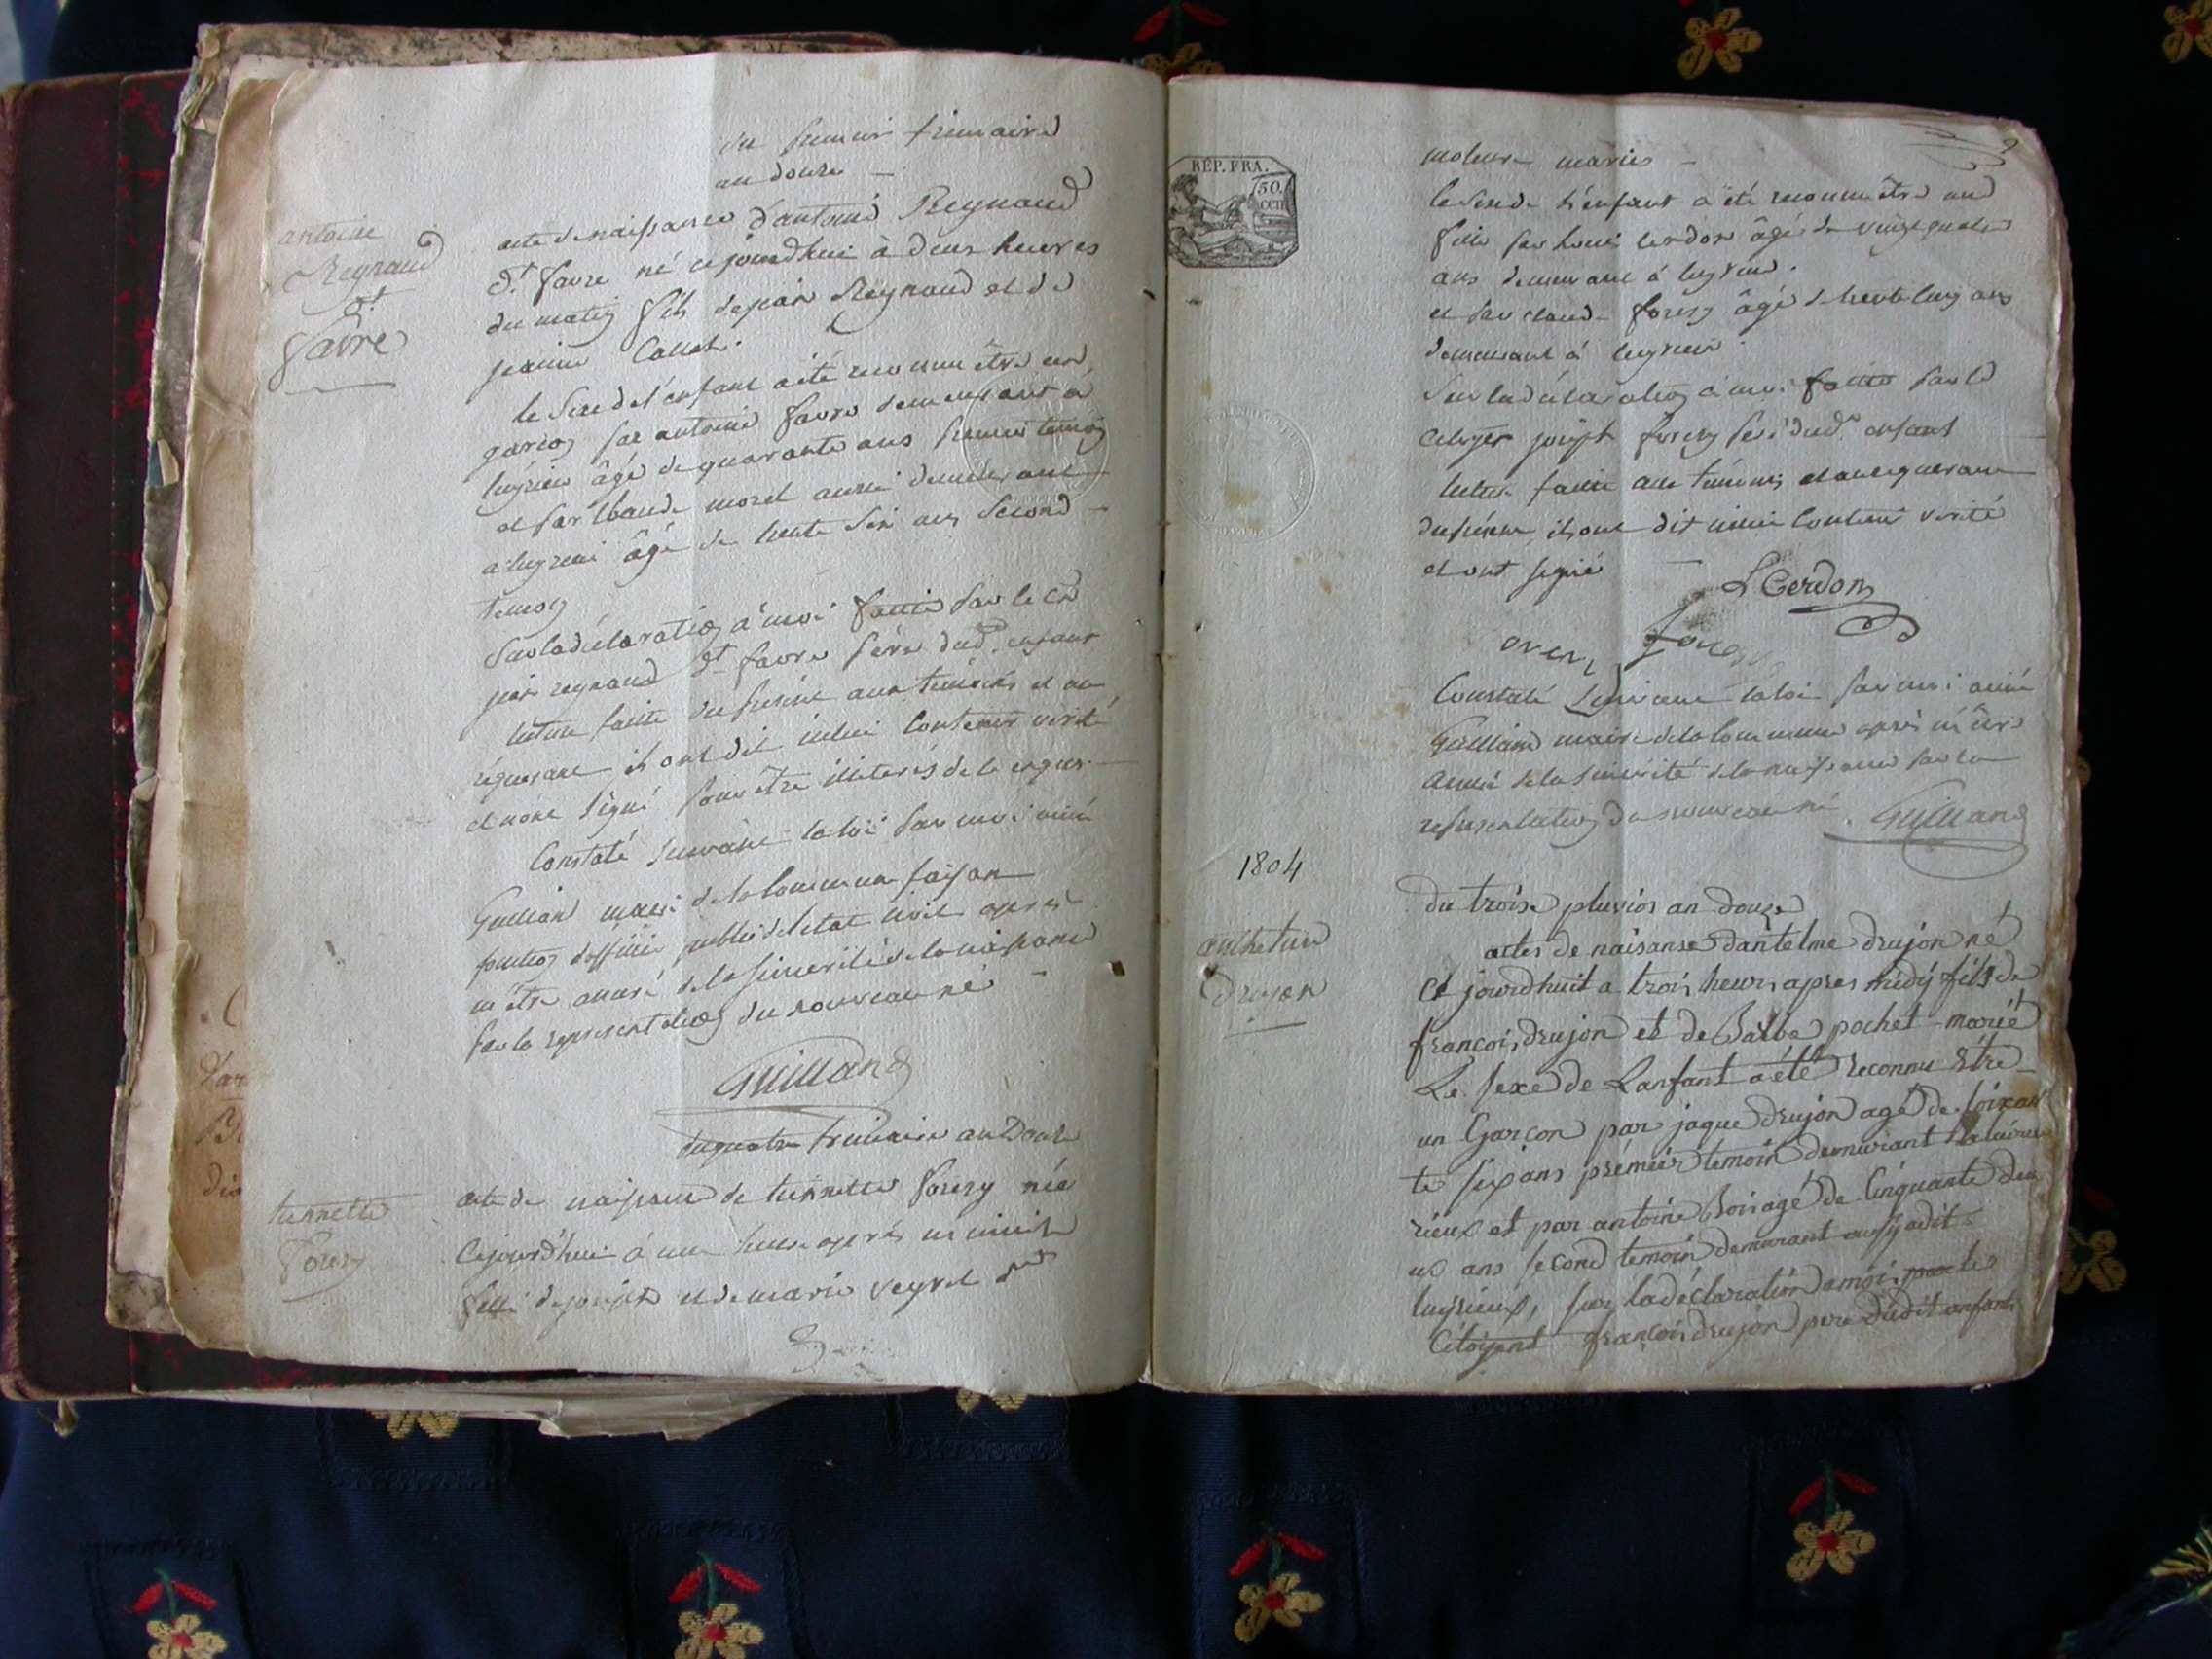 du premier frimaire
an douze
antoine
Reynaud
dt
favre
acte de naissance d'antoine Reynaud
dt favre né cejourdhui à deux heures
du matin fils de jean Reynaud et de
jeanne Collet.
le sexe de l'enfant a été reconnu être un
garcon par antoine favre demeurant a
luyrieu âgé de quarante ans premier temoin
et par Claude morel aussi demeurant
a luyrieu âgé de trente six ans second
temoin
Sur la déclaration à moi faitte par le Cen
jean reynaud dt favre père dud. enfant
lecture faitte du présent aux témoins et au
réquerant ils ont dit icelui contenir vérité
et n'ont signé pour être illiterés de ce enquis
Constaté suivant la loi par moi aimé
Guilland maire de la commune faisan
fonction d'officier public de l'etat civil après
m'être assuré de la sincerité de la naissance
par la representation du nouveau né
Guilland
du quatre frimaire an Douze
tiennette
forery
acte de naissance de tiennette forery née
Cejourd'hui à une heure après minuit
fille de joseph et de marie veyret
RÉP. FRA.
50.
CEN
moleure mariés
le sexe de l'enfant a été reconnu être une
fille par louis Cerdon âgé de vingt quatre
ans demeurant à luyrieu.
et par claude forery âgé de trente cinq ans
demeurant à luyrieu.
Sur la déclaration à moi faitte par le
Citoyen joseph forery père dud. enfant
lecture faitte aux témoins et au requerant
du présent ils ont dit icelui Contenir vérité
et ont signé
L Cerdon
Constaté suivant la loi par moi aimé
Guilland maire de la commune après m'être
assuré de la sincerité de la naissance par la
representation du nouveau né. Guilland
1804
du troise pluvios an douze
anthelme
Drujon
actes de naisanse dantelme drujon né
Ce jourdhuit a trois heurs apres midy fils de
francois drujon et de Balbe pochet marié
Le sexe de Lanfant a été reconnu être
un Garcon par jaque drujon agé de soixan
te six ans prémier temoin demurant a luire
rieux et par antoine Boi agé de Cinquante deu
us ans second temoin demurant aussy adit
luyrieux, sur la déclaration amoi par le
Citoyent francois drujon pere dudit anfant